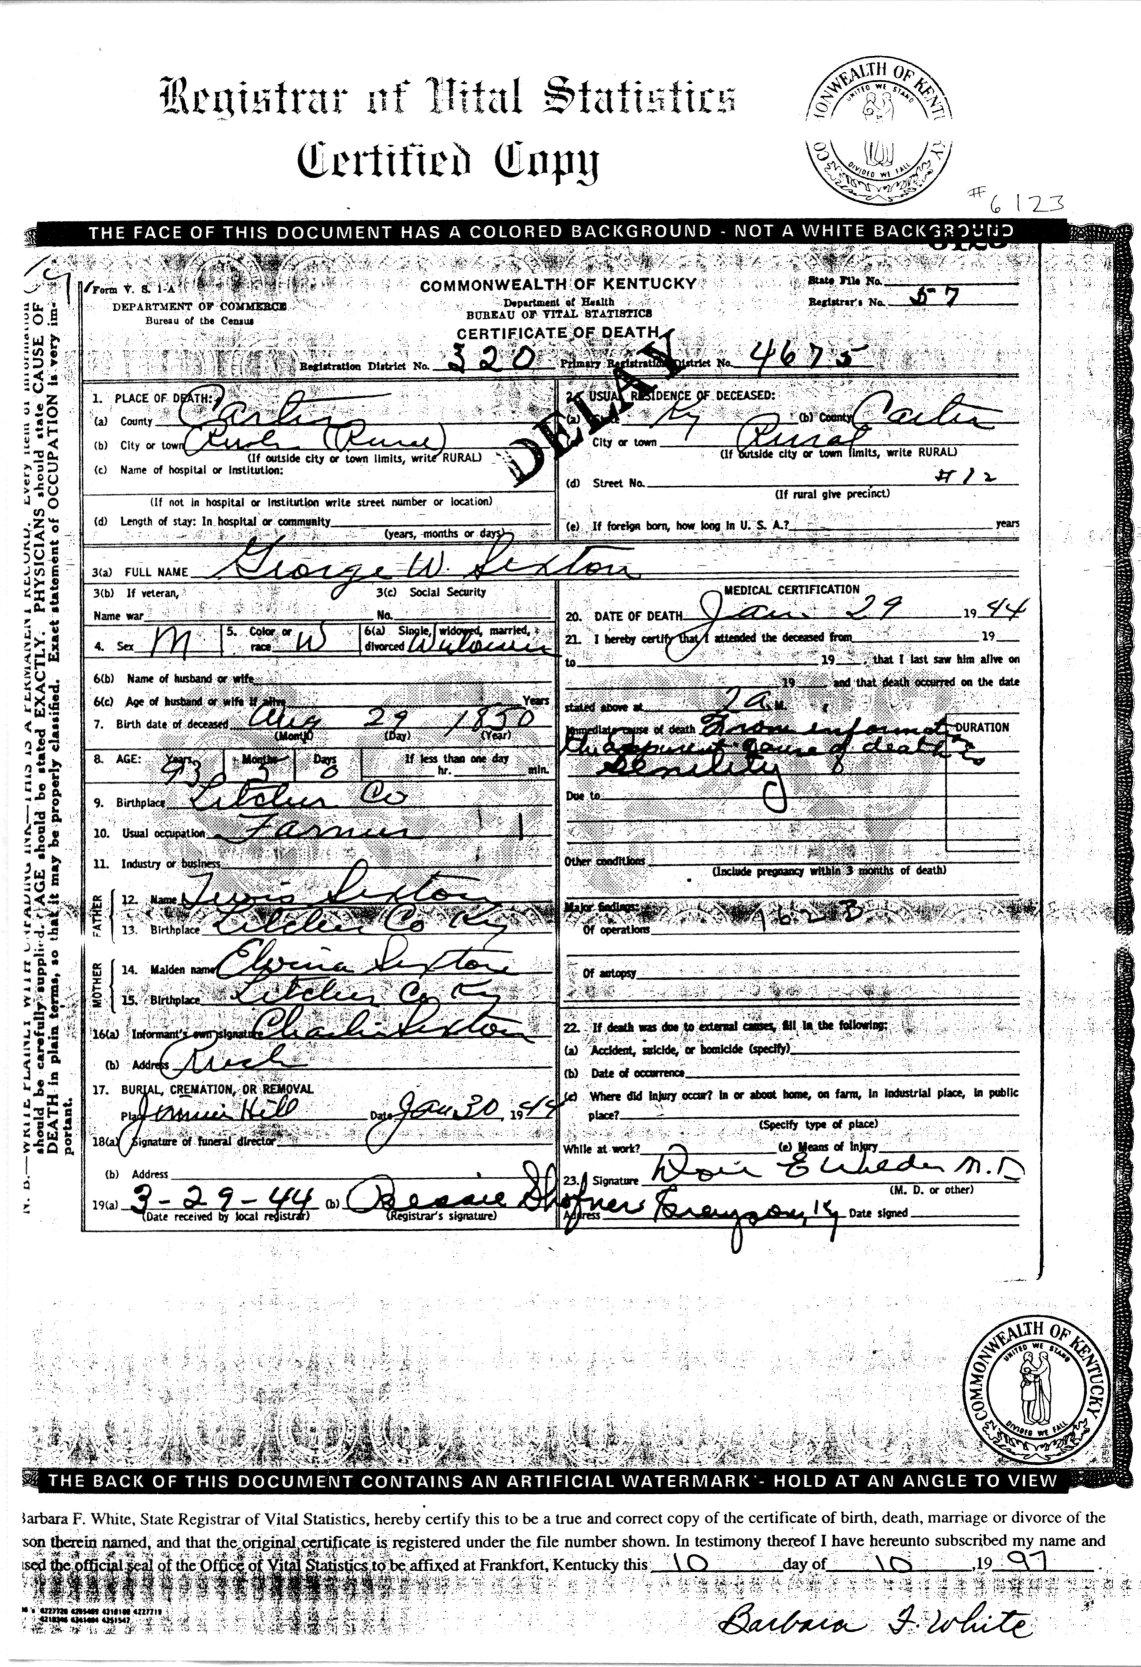 Registrar of Vital Statistics
Certified Copy
COMMONWEALTH OF KENTUCKY
UNITED WE STAND
DIVIDED WE FALL
# 6123
THE FACE OF THIS DOCUMENT HAS A COLORED BACKGROUND - NOT A WHITE BACKGROUND
Form V. S. 1-A
DEPARTMENT OF COMMERCE
Bureau of the Census
COMMONWEALTH OF KENTUCKY
Department of Health
BUREAU OF VITAL STATISTICS
CERTIFICATE OF DEATH
State File No.
Registrar's No. 57
Registration District No. 320 Primary Registration District No. 4675
DELAY
1. PLACE OF DEATH:
(a) County Carter
(b) City or town (Rural)
(If outside city or town limits, write RURAL)
(c) Name of hospital or institution:
(If not in hospital or institution write street number or location)
(d) Length of stay: In hospital or community
(years, months or days)
2. USUAL RESIDENCE OF DECEASED:
(a) Ky (b) County Carter
City or town Rural
(If outside city or town limits, write RURAL)
(d) Street No. #12
(If rural give precinct)
(e) If foreign born, how long in U. S. A.? years
3(a) FULL NAME George W. Sexton
3(b) If veteran,
Name war
3(c) Social Security
No.
4. Sex M
5. Color or race W
6(a) Single, widowed, married, divorced Widower
6(b) Name of husband or wife
6(c) Age of husband or wife if alive Years
7. Birth date of deceased Aug 29 1850
(Month) (Day) (Year)
8. AGE: Years 93 Months 5 Days 0 If less than one day
hr. min.
9. Birthplace Letcher Co
10. Usual occupation Farmer
11. Industry or business
FATHER
12. Name Lewis Sexton
13. Birthplace Letcher Co Ky
MOTHER
14. Maiden name Elvina Sexton
15. Birthplace Letcher Co Ky
16(a) Informant's own signature Charlie Sexton
(b) Address Rush
17. BURIAL, CREMATION, OR REMOVAL
Place Hill Date Jan 30, 1944
18(a) Signature of funeral director
(b) Address
19(a) 3-29-44 (b) Bessie Shofner
(Date received by local registrar) (Registrar's signature)
MEDICAL CERTIFICATION
20. DATE OF DEATH Jan 29 1944
21. I hereby certify that I attended the deceased from 19
to 19 , that I last saw him alive on
19 and that death occurred on the date
stated above at 2 a M.
Immediate cause of death From information DURATION
the apparent cause of death is
Senility
Due to
Other conditions
(Include pregnancy within 3 months of death)
Major findings: 162B
Of operations
Of autopsy
22. If death was due to external causes, fill in the following:
(a) Accident, suicide, or homicide (specify)
(b) Date of occurrence
(c) Where did injury occur? In or about home, on farm, in industrial place, in public
place?
(Specify type of place)
While at work? (e) Means of Injury
23. Signature E M.D
(M. D. or other)
Address Grayson, Ky Date signed
should be carefully supplied. AGE should be stated EXACTLY. PHYSICIANS should state CAUSE OF
DEATH in plain terms, so that it may be properly classified. Exact statement of OCCUPATION is very im-
portant.
COMMONWEALTH OF KENTUCKY
UNITED WE STAND
DIVIDED WE FALL
THE BACK OF THIS DOCUMENT CONTAINS AN ARTIFICIAL WATERMARK - HOLD AT AN ANGLE TO VIEW
Barbara F. White, State Registrar of Vital Statistics, hereby certify this to be a true and correct copy of the certificate of birth, death, marriage or divorce of the
son therein named, and that the original certificate is registered under the file number shown. In testimony thereof I have hereunto subscribed my name and
sed the official seal of the Office of Vital Statistics to be affixed at Frankfort, Kentucky this 10 day of 10 ,19 97 .
Barbara F. White